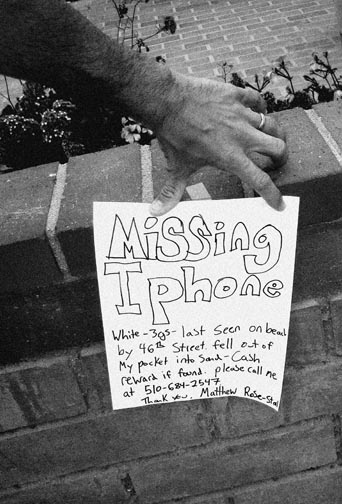 Missing
Iphone
White -3gs- last seen on beach
by 46th Street. fell out of
My pocket into Sand - Cash
reward if found. please call me
at 510-684-2547
Thank you, Matthew Rose-Stal